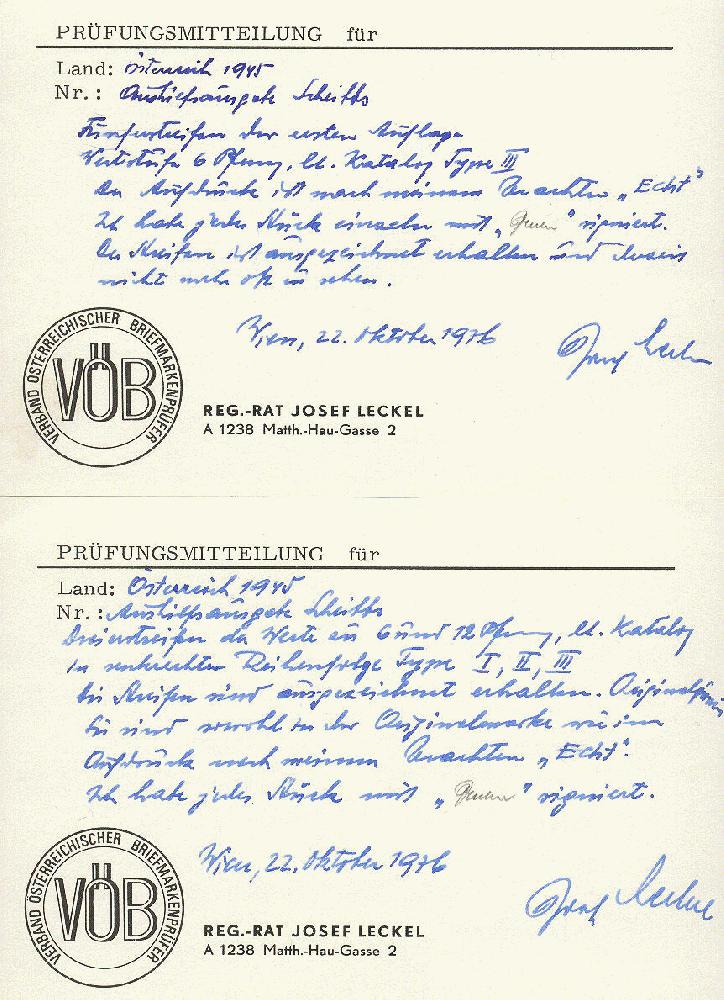 PRÜFUNGSMITTEILUNG für
Land: Österreich 1945
Nr.: Aushilfsausgabe Scheibbs
Fünferstreifen der ersten Auflage
Wertstufe 6 Pfennig, lt. Katalog Type III
Der Aufdruck ist nach meinem Erachten „Echt"
Ich habe jedes Stück einzeln mit „ " signiert.
Der Streifen ist ausgezeichnet erhalten und dieser
nicht mehr oft zu sehen.
Wien, 22. Oktober 1976
Josef Leckel
VERBAND ÖSTERREICHISCHER BRIEFMARKENPRÜFER
VÖB
REG.-RAT JOSEF LECKEL
A 1238 Matth.-Hau-Gasse 2
PRÜFUNGSMITTEILUNG für
Land: Österreich 1945
Nr.: Aushilfsausgabe Scheibbs
Dreierstreifen der Werte zu 6 und 12 Pfennig, lt. Katalog
in senkrechter Reihenfolge Type I, II, III
Die Streifen sind ausgezeichnet erhalten.
Sie sind sowohl in der Originalmarke wie im
Aufdruck nach meinem Erachten „Echt".
Ich habe jedes Stück mit „ " signiert.
Wien, 22. Oktober 1976
Josef Leckel
VERBAND ÖSTERREICHISCHER BRIEFMARKENPRÜFER
VÖB
REG.-RAT JOSEF LECKEL
A 1238 Matth.-Hau-Gasse 2